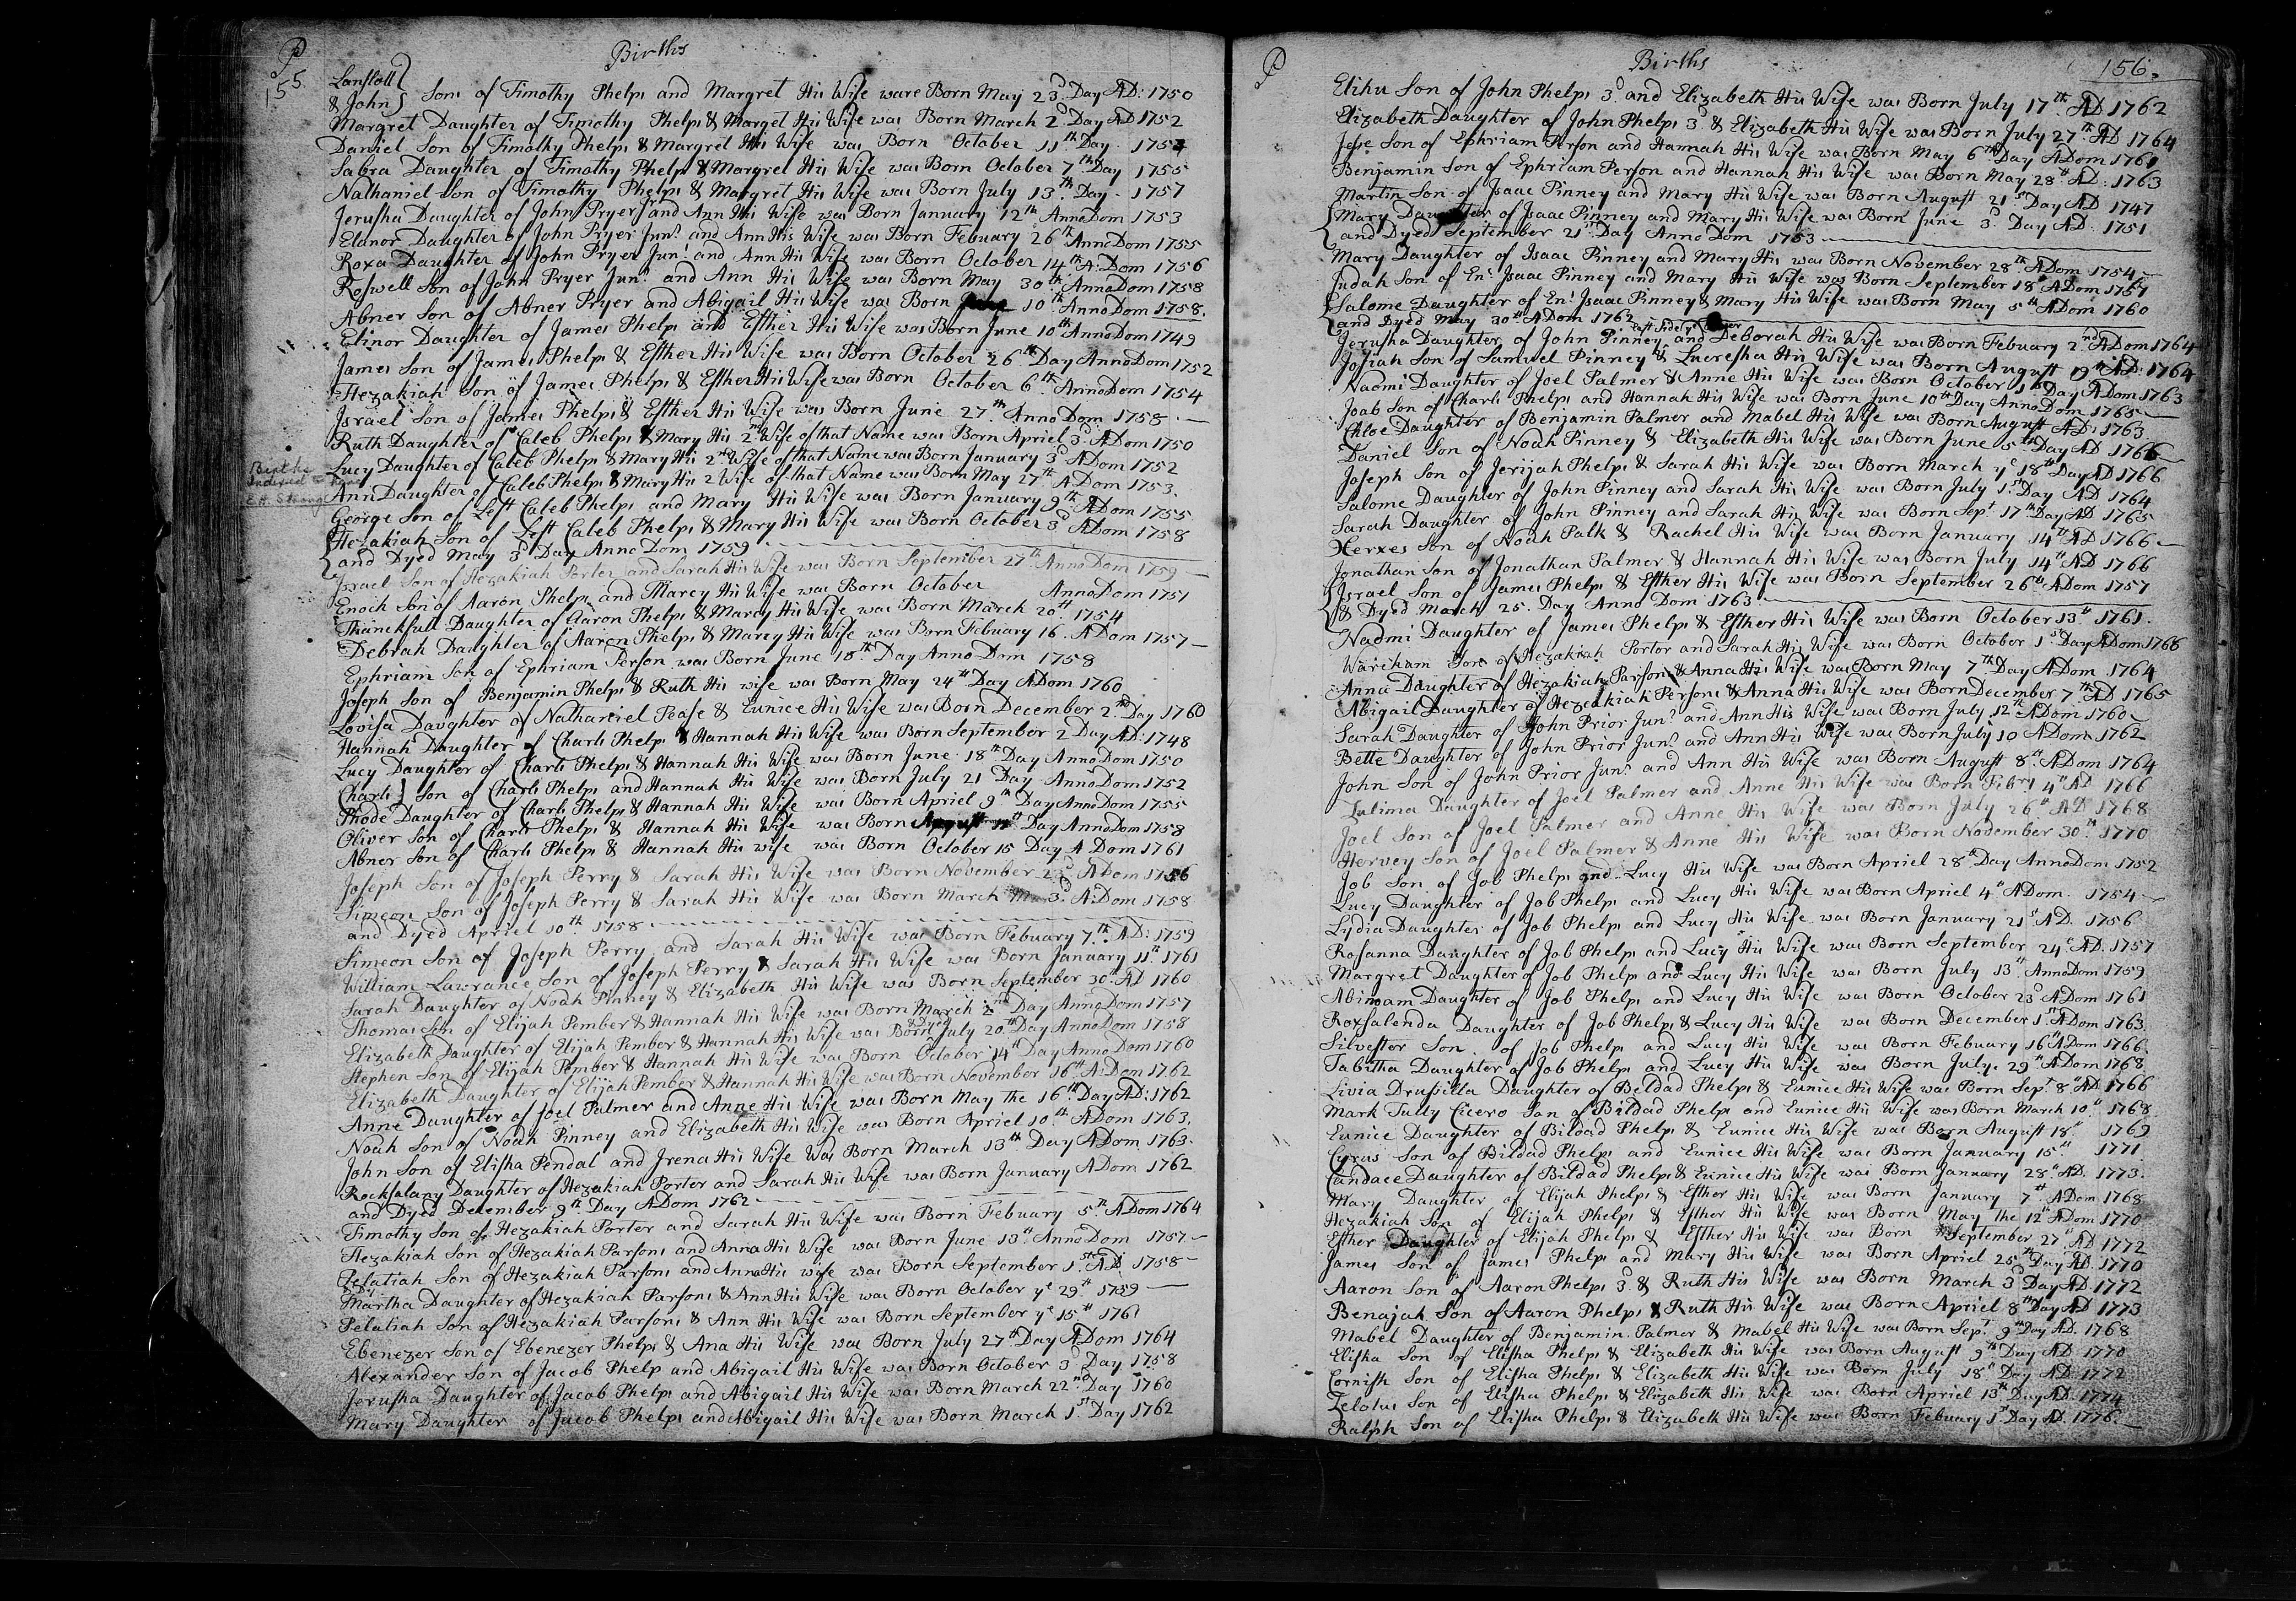 P
Births
155
Lansloll
& John } Sons of Timothy Phelps and Margret His Wife ware Born May 23d Day AD: 1750
Margret Daughter of Timothy Phelps & Margret His Wife was Born March 2d Day AD 1752
Daniel Son of Timothy Phelps & Margret His Wife was Born October 11th Day 1754
Sabra Daughter of Timothy Phelps & Margret His Wife was Born October 7th Day 1755
Nathaniel Son of Timothy Phelps & Margret His Wife was Born July 13th Day - 1757
Jerusha Daughter of John Pryer Jr and Ann His Wife was Born January 12th AnnoDom 1753
Elanor Daughter of John Pryer Junr and Ann His Wife was Born Febuary 26th AnnoDom 1755
Roxa Daughter of John Pryer Junr and Ann His Wife was Born October 14th A:Dom 1756
Roswell Son of John Pryer Junr and Ann His Wife was Born May 30th AnnoDom 1758
Abner Son of Abner Pryer and Abigail His Wife was Born June 10th AnnoDom 1758.
Elinor Daughter of James Phelps and Esther His Wife was Born June 10th AnnoDom 1749
James Son of James Phelps & Esther His Wife was Born October 26th Day AnnoDom 1752
Hezakiah Son of James Phelps & Esther His Wife was Born October 6th AnnoDom 1754
Israel Son of James Phelps & Esther His Wife was Born June 27th AnnoDom 1758
Ruth Daughter of Caleb Phelps & Mary His 2nd Wife of that Name was Born Apriel 3d ADom 1750
Lucy Daughter of Caleb Phelps & Mary His 2nd Wife of that Name was Born January 3d ADom 1752
Births
Indexed
E.H. Strong
Ann Daughter of Caleb Phelps & Mary His 2 Wife of that Name was Born May 27th ADom 1753.
George Son of Left Caleb Phelps and Mary His Wife was Born January 9th ADom 1755
Hezakiah Son of Left Caleb Phelps & Mary His Wife was Born October 3d ADom 1758
and Dyed May 3d Day AnnoDom 1759
Israel Son of Hezakiah Porter and Sarah His Wife was Born September 27th AnnoDom 1759
Enoch Son of Aaron Phelps and Marcy His Wife was Born October AnnoDom 1751
Thanckfull Daughter of Aaron Phelps & Marcy His Wife was Born March 20th 1754
Debrah Daughter of Aaron Phelps & Marcy His Wife was Born Febuary 16. ADom 1757
Ephriam Son of Ephriam Person was Born June 18th Day AnnoDom 1758
Joseph Son of Benjamin Phelps & Ruth His wife was Born May 24th Day ADom 1760
Lovisa Daughter of Nathaniel Pease & Eunice His Wife was Born December 2nd Day 1760
Hannah Daughter of Charls Phelps & Hannah His Wife was Born September 2 Day AD: 1748
Lucy Daughter of Charls Phelps & Hannah His Wife was Born June 18th Day AnnoDom 1750
Charls } Son of Charls Phelps and Hannah His Wife was Born July 21 Day AnnoDom 1752
Rhode Daughter of Charls Phelps & Hannah His Wife was Born Apriel 9th Day AnnoDom 1755
Oliver Son of Charls Phelps & Hannah His Wife was Born August Day AnnoDom 1758
Abner Son of Charls Phelps & Hannah His wife was Born October 15 Day A Dom 1761
Joseph Son of Joseph Perry & Sarah His Wife was Born November 23d ADom 1756
Simeon Son of Joseph Perry & Sarah His Wife was Born March 3d A:Dom 1758
and Dyed Apriel 10th 1758
Simeon Son of Joseph Perry and Sarah His Wife was Born Febuary 7th AD: 1759
William Lawrance Son of Joseph Perry & Sarah His Wife was Born January 11th 1761
Sarah Daughter of Noah Pinney & Elizabeth His Wife was Born September 30th AD 1760
Thomas Son of Elijah Pember & Hannah His Wife was Born March 2nd Day AnnoDom 1757
Elizabeth Daughter of Elijah Pember & Hannah His Wife was Born July 20th Day AnnoDom 1758
Stephen Son of Elijah Pember & Hannah His Wife was Born October 14th Day AnnoDom 1760
Elizabeth Daughter of Elijah Pember & Hannah His Wife was Born November 16th A:Dom 1762
Anne Daughter of Joel Palmer and Anne His Wife was Born May the 16th Day AD: 1762
Noah Son of Noah Pinney and Elizabeth His Wife was Born Apriel 10th ADom 1763.
John Son of Elisha Pendal and Irena His Wife Was Born March 13th Day ADom 1763.
Rocksalany Daughter of Hezakiah Porter and Sarah His Wife was Born January ADom 1762
and Dyed December 9th Day ADom 1762
Timothy Son of Hezakiah Porter and Sarah His Wife was Born Febuary 5th ADom 1764
Hezakiah Son of Hezakiah Parsons and Anna His Wife was Born June 13th AnnoDom 1757
Pelatiah Son of Hezakiah Parsons and Anna His wife was Born September 1st AD 1758
Martha Daughter of Hezakiah Parsons & Ann His Wife was Born October ye 29th 1759
Pelatiah Son of Hezakiah Parsons & Ann His Wife was Born September ye 15th 1761
Ebenezer Son of Ebenezer Phelps & Ana His Wife was Born July 27th Day ADom 1764
Alexander Son of Jacob Phelp and Abigail His Wife was Born October 3d Day 1758
Jerusha Daughter of Jacob Phelps and Abigail His Wife was Born March 22nd Day 1760
Mary Daughter of Jacob Phelps and Abigail His Wife was Born March 1st Day 1762
P
Births
156.
Elihu Son of John Phelps 3d and Elizabeth His Wife was Born July 17th AD 1762
Elizabeth Daughter of John Phelps 3d & Elizabeth His Wife was Born July 27th AD 1764
Jese Son of Ephriam Person and Hannah His Wife was Born May 6th Day ADom 1761
Benjamin Son of Ephriam Person and Hannah His Wife was Born May 28th AD: 1763
Martin Son of Isaac Pinney and Mary His Wife was Born August 21st Day AD 1747
Mary Daughter of Isaac Pinney and Mary His Wife was Born June 3d Day AD: 1751
and Dyed September 21st Day AnnoDom 1753
Mary Daughter of Isaac Pinney and Mary His was Born November 28th ADom 1754
Judah Son of Ens Isaac Pinney and Mary His Wife was Born September 18th ADom 1757
Salome Daughter of Ens Isaac Pinney & Mary His Wife was Born May 5th ADom 1760
and Dyed May 30th ADom 1762
Jerusha Daughter of John Pinney and Deborah His Wife was Born Febuary 2nd ADom 1764
Josiah Son of Samuel Pinney & Lucresha His Wife was Born August 19th AD: 1764
Naomi Daughter of Joel Palmer & Anne His Wife was Born October 1st Day ADom 1763
Joab Son of Charls Phelps and Hannah His Wife was Born June 10th Day AnnoDom 1765
Chloe Daughter of Benjamin Palmer and Mabel His Wife was Born August AD: 1763
Daniel Son of Noah Pinney & Elizabeth His Wife was Born June 5th Day AD 1766
Joseph Son of Jerijah Phelps & Sarah His Wife was Born March ye 18th Day AD 1766
Salome Daughter of John Pinney and Sarah His Wife was Born July 1st Day AD 1764
Sarah Daughter of John Pinney and Sarah His Wife was Born Sept 17th Day AD 1765
Herxes Son of Noah Palk & Rachel His Wife was Born January 14th AD 1766
Jonathan Son of Jonathan Palmer & Hannah His Wife was Born July 14th AD 1766
Israel Son of James Phelps & Esther His Wife was Born September 26th ADom 1757
& Dyed March 25. Day Anno Dom 1763
Naomi Daughter of James Phelps & Esther His Wife was Born October 13th 1761.
Wareham Son of Hezakiah Portor and Sarah His Wife was Born October 1st Day ADom 1766
Anna Daughter of Hezakiah Parsons & Anna His Wife was Born May 7th Day ADom 1764
Abigail Daughter of Hezeakiah Persons & Anna His Wife was Born December 7th AD 1765
Sarah Daughter of John Prior Junr and Ann His Wife was Born July 12th ADom 1760
Bette Daughter of John Prior Junr and Ann His Wife was Born July 10 ADom 1762
John Son of John Prior Junr and Ann His Wife was Born August 8th ADom 1764
Lulima Daughter of Joel Palmer and Anne His Wife was Born Febry 4th AD 1766
Joel Son of Joel Palmer and Anne His Wife was Born July 26th AD 1768
Hervey Son of Joel Palmer & Anne His Wife was Born November 30th 1770
Job Son of Job Phelps and Lucy His Wife was Born Apriel 28th Day AnnoDom 1752
Lucy Daughter of Job Phelps and Lucy His Wife was Born Apriel 4th ADom. 1754
Lydia Daughter of Job Phelps and Lucy His Wife was Born January 21st AD. 1756
Rosanna Daughter of Job Phelps and Lucy His Wife was Born September 24th AD. 1757
Margret Daughter of Job Phelps and Lucy His Wife was Born July 13th AnnoDom 1759
Abinoam Daughter of Job Phelps and Lucy His Wife was Born October 23d ADom 1761
Roxsalenda Daughter of Job Phelps & Lucy His Wife was Born December 1st ADom 1763
Silvester Son of Job Phelps and Lucy His Wife was Born Febuary 16th ADom 1766.
Tabitha Daughter of Job Phelps and Lucy His Wife was Born July. 29th ADom 1768
Livia Drusilla Daughter of Beldad Phelps & Eunice His Wife was Born Sept 8th AD 1766
Mark Tully Cicero Son of Bildad Phelps and Eunice His Wife was Born March 10th 1768
Eunice Daughter of Bildad Phelps & Eunice His Wife was Born August 18th 1769
Cyrus Son of Bildad Phelps and Eunice His Wife was Born January 15th 1771
Candace Daughter of Bildad Phelps & Eunice His Wife was Born January 28th AD. 1773.
Mary Daughter of Elijah Phelps & Esther His Wife was Born January 7th ADom 1768
Hezakiah Son of Elijah Phelps & Esther His Wife was Born May the 12th ADom 1770
Esther Daughter of Elijah Phelps & Esther His Wife was Born September 27th AD 1772
James Son of James Phelps and Mary His Wife was Born Apriel 25th Day AD. 1770
Aaron Son of Aaron Phelps 3d & Ruth His Wife was Born March 3d Day AD 1772
Benajah Son of Aaron Phelps & Ruth His Wife was Born Apriel 8th Day AD 1773
Mabel Daughter of Benjamin Palmer & Mabel His Wife was Born Sept 9th Day AD. 1768
Elisha Son of Elisha Phelps & Elizabeth His Wife was Born August 9th Day AD 1770
Cornish Son of Elisha Phelps & Elizabeth His Wife was Born July 18th Day AD 1772
Zelotus Son of Elisha Phelps & Elizabeth His Wife was Born Apriel 13th Day AD. 1774
Ralph Son of Elisha Phelps & Elizabeth His Wife was Born Febuary 1st Day AD. 1776.